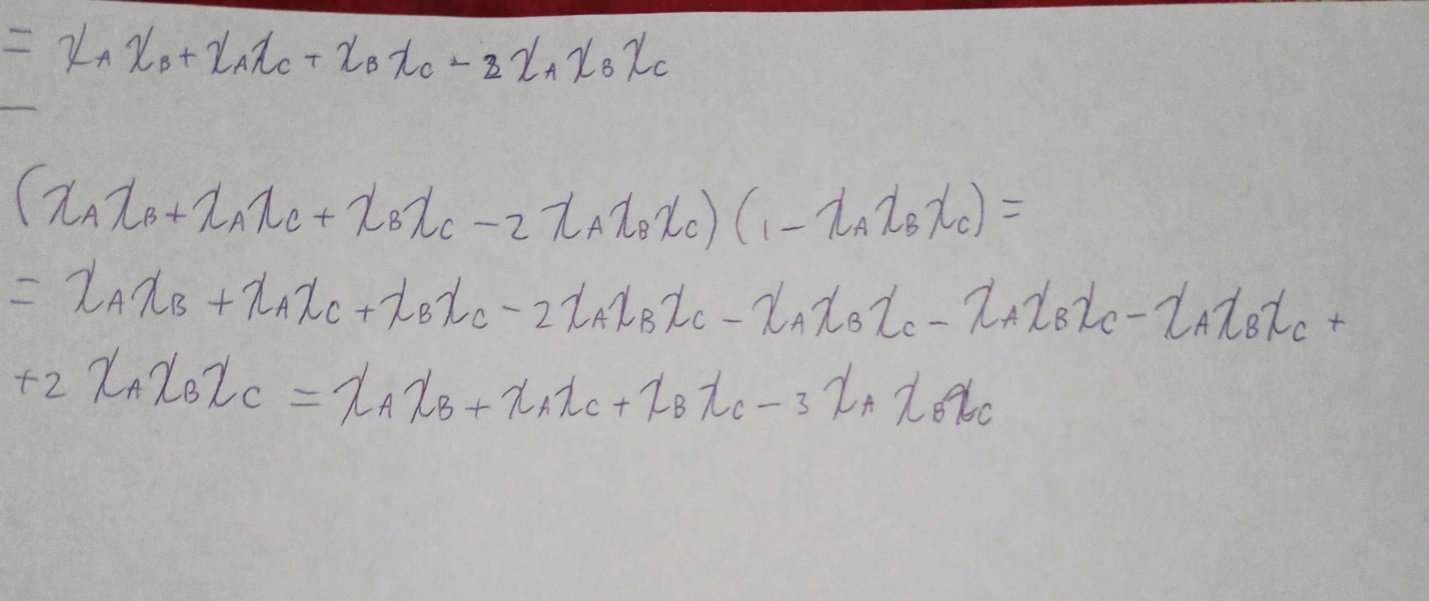 = χ_A χ_B + χ_A χ_C + χ_B χ_C - 3 χ_A χ_B χ_C
(χ_A χ_B + χ_A χ_C + χ_B χ_C - 2 χ_A χ_B χ_C)(1 - χ_A χ_B χ_C) =
= χ_A χ_B + χ_A χ_C + χ_B χ_C - 2 χ_A χ_B χ_C - χ_A χ_B χ_C - χ_A χ_B χ_C - χ_A χ_B χ_C +
+ 2 χ_A χ_B χ_C = χ_A χ_B + χ_A χ_C + χ_B χ_C - 3 χ_A χ_B χ_C